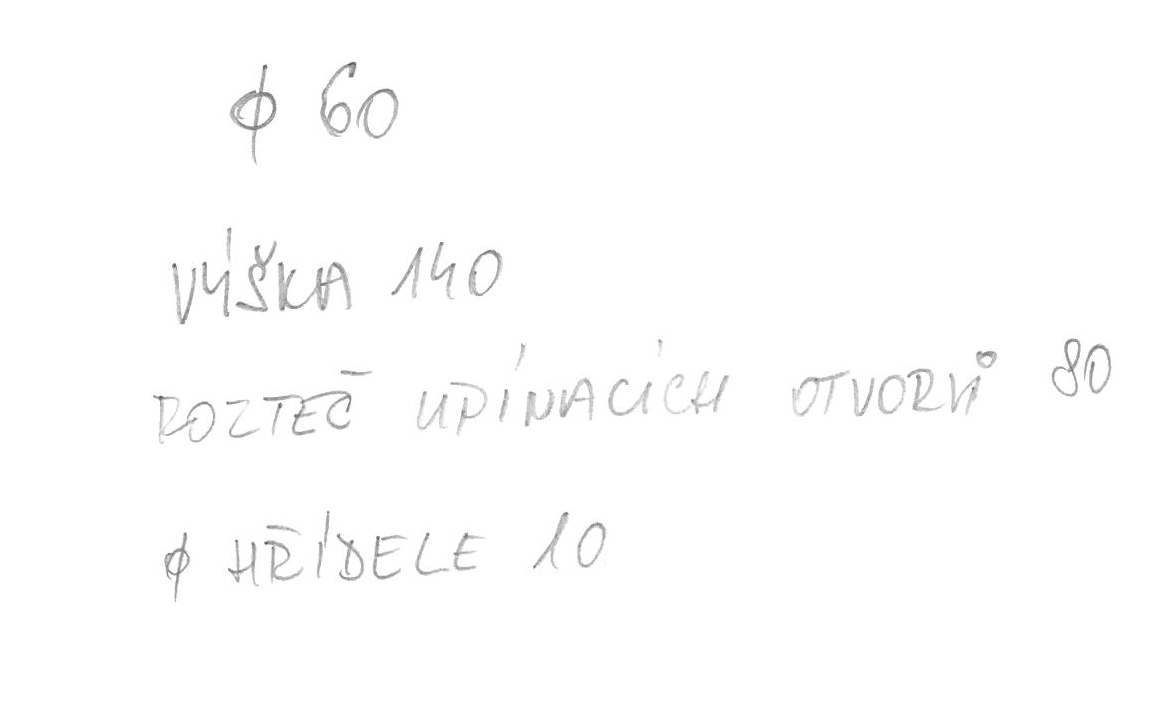 φ 60
VÝŠKA 140
ROZTEČ UPÍNACÍCH OTVORŮ 80
φ HŘÍDELE 10